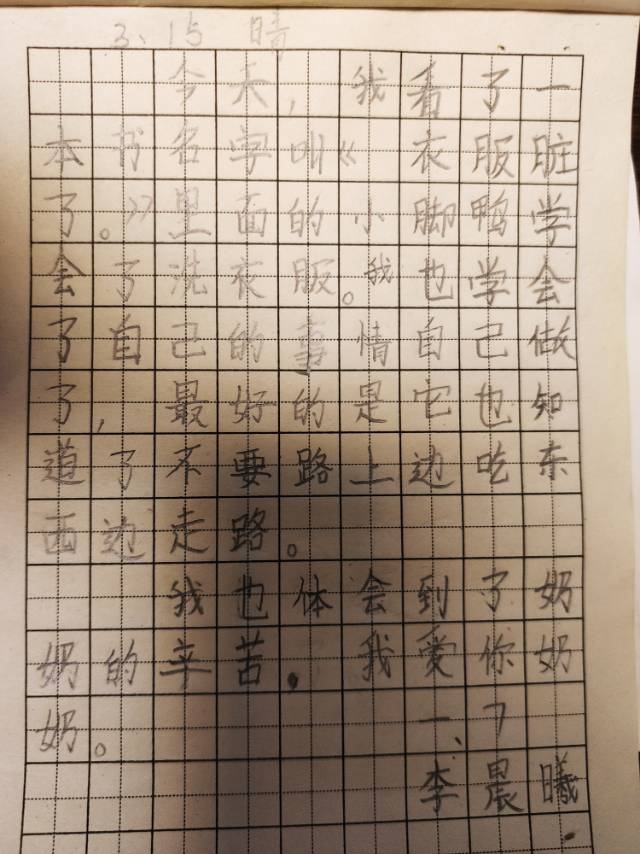 3、15 晴
今天，我看了一
本书名字叫《 衣服脏
了。》里面的小脚鸭学
会了洗衣服。我也学会
了自己的事情自己做
了，最好的是它也知
道了不要路上边吃东
西边走路。
我也体会到了奶
奶的辛苦，我爱你奶
奶。 一、7
李晨曦